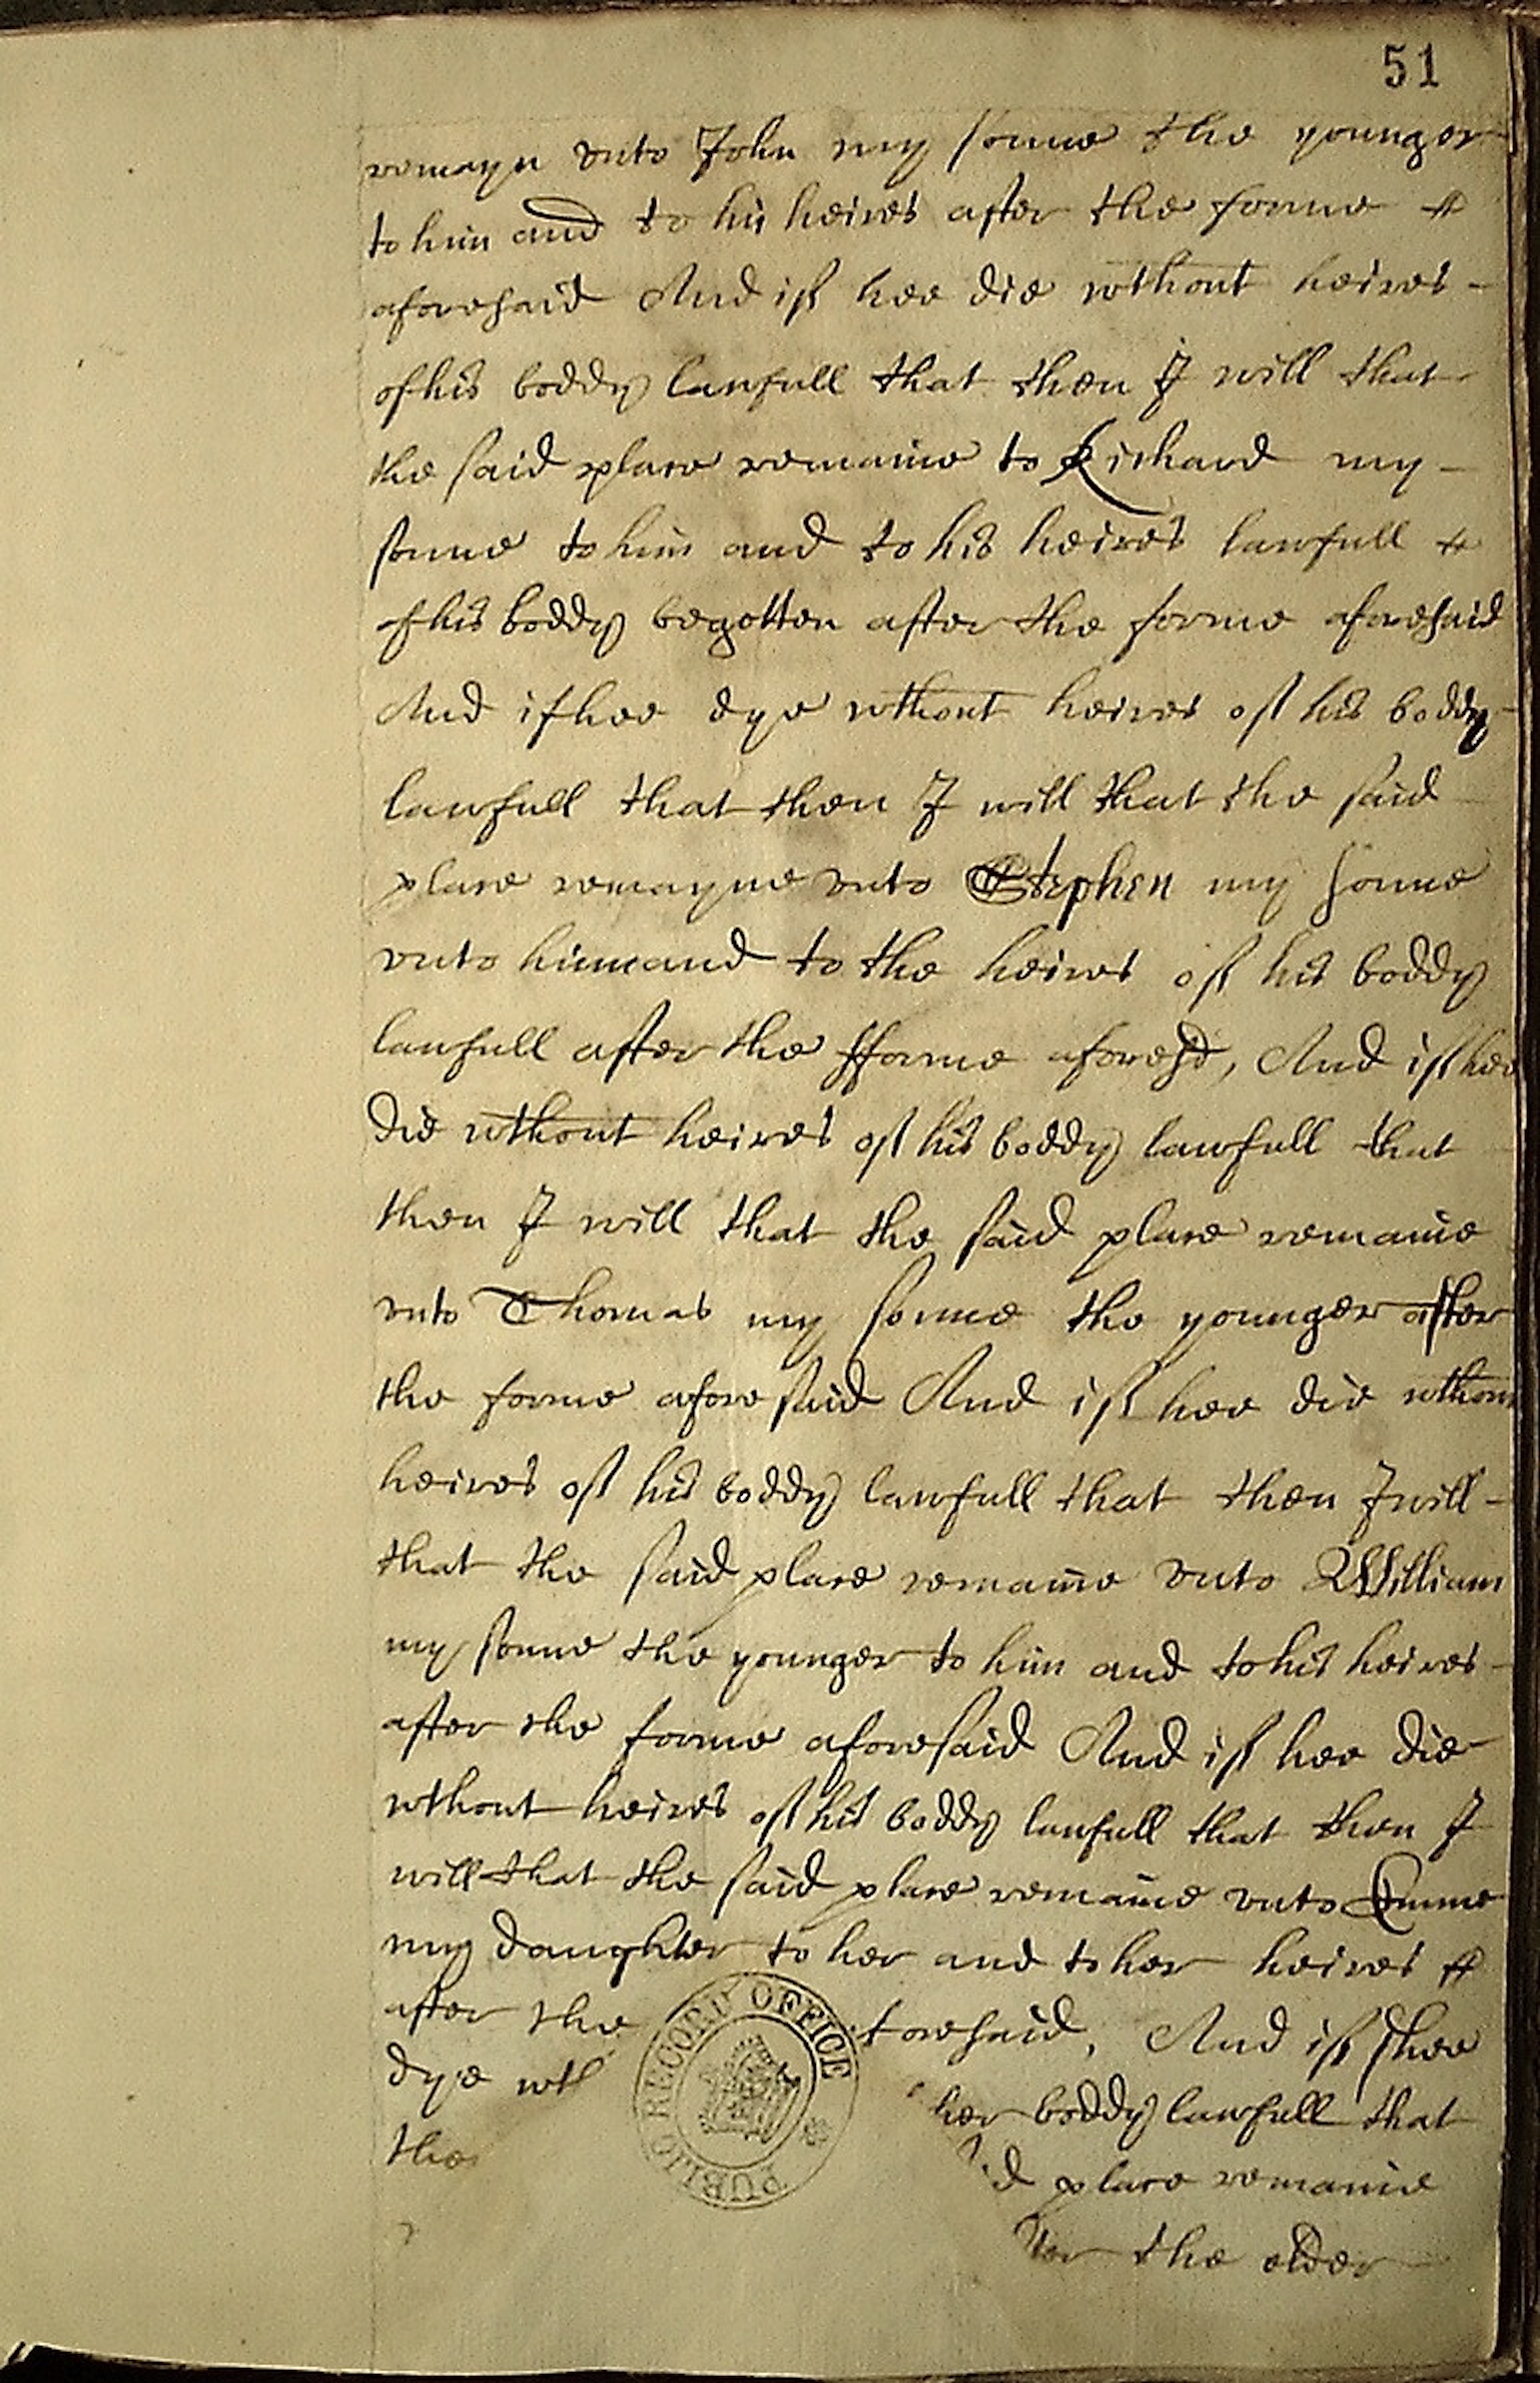 51
remayn vnto John my sonne the younger
to him and to his heires after the forme
aforesaid And if hee die wthout heires -
of his boddy lawfull that then I will that
the said place remaine to Richard my -
sonne to him and to his heires lawfull
of his boddy begotten after the forme aforesaid
And if hee dye wthout heires of his boddy
lawfull that then I will that the said
place remayne vnto Stephen my sonne
vnto him and to the heires of his boddy
lawfull after the fforme aforesd, And if hee
die wthout heires of his boddy lawfull that
then I will that the said place remaine
vnto Thomas my sonne the younger after
the forme aforesaid And if hee die wthout
heires of his boddy lawfull that then I will -
that the said place remaine vnto William
my sonne the younger to him and to his heires -
after the forme aforesaid And if hee die
wthout heires of his boddy lawfull that then I
will that the said place remaine vnto Emme
my daughter to her and to her heires
after the foresaid, And if shee
dye wth her boddy lawfull that
the place remaine
the elder
PUBLIC RECORD OFFICE